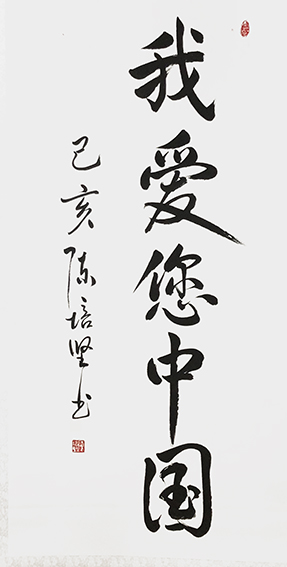 我爱您中国
己亥陈培坚书